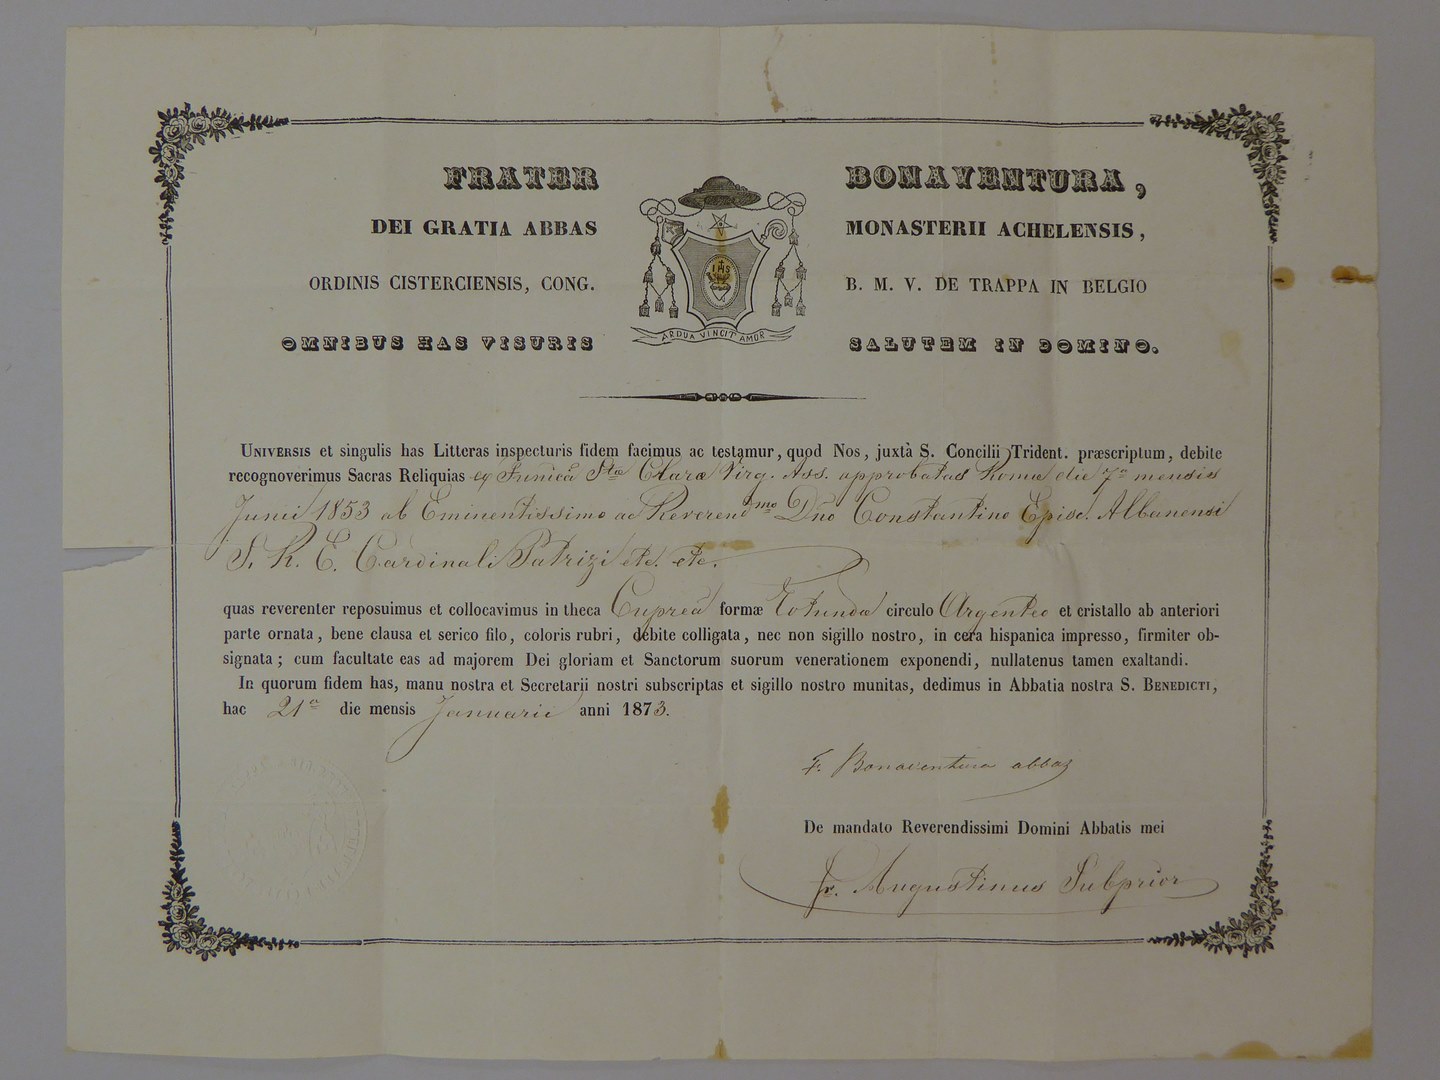 FRATER BONAVENTURA,
DEI GRATIA ABBAS MONASTERII ACHELENSIS,
ORDINIS CISTERCIENSIS, CONG. B. M. V. DE TRAPPA IN BELGIO
IHS
ARDUA VINCIT AMOR
OMNIBUS HAS VISURIS SALUTEM IN DOMINO.
UNIVERSIS et singulis has Litteras inspecturis fidem facimus ac testamur, quod Nos, juxtà S. Concilii Trident. præscriptum, debite
recognoverimus Sacras Reliquias ex Tunicâ Stæ Claræ Virg. Ass. approbatas Romæ die 7a mensis
Junii 1853 ab Eminentissimo ac Reverendmo Dno Constantino Episc. Albanensi
S. R. E. Cardinali Patrizi etc. etc.
quas reverenter reposuimus et collocavimus in theca Cupreâ formæ Rotundæ circulo Argenteo et cristallo ab anteriori
parte ornata, bene clausa et serico filo, coloris rubri, debite colligata, nec non sigillo nostro, in cera hispanica impresso, firmiter ob-
signata; cum facultate eas ad majorem Dei gloriam et Sanctorum suorum venerationem exponendi, nullatenus tamen exaltandi.
In quorum fidem has, manu nostra et Secretarii nostri subscriptas et sigillo nostro munitas, dedimus in Abbatia nostra S. BENEDICTI,
hac 21a die mensis Januarii anni 1873.
F. Bonaventura abbas
De mandato Reverendissimi Domini Abbatis mei
fr. Augustinus Subprior